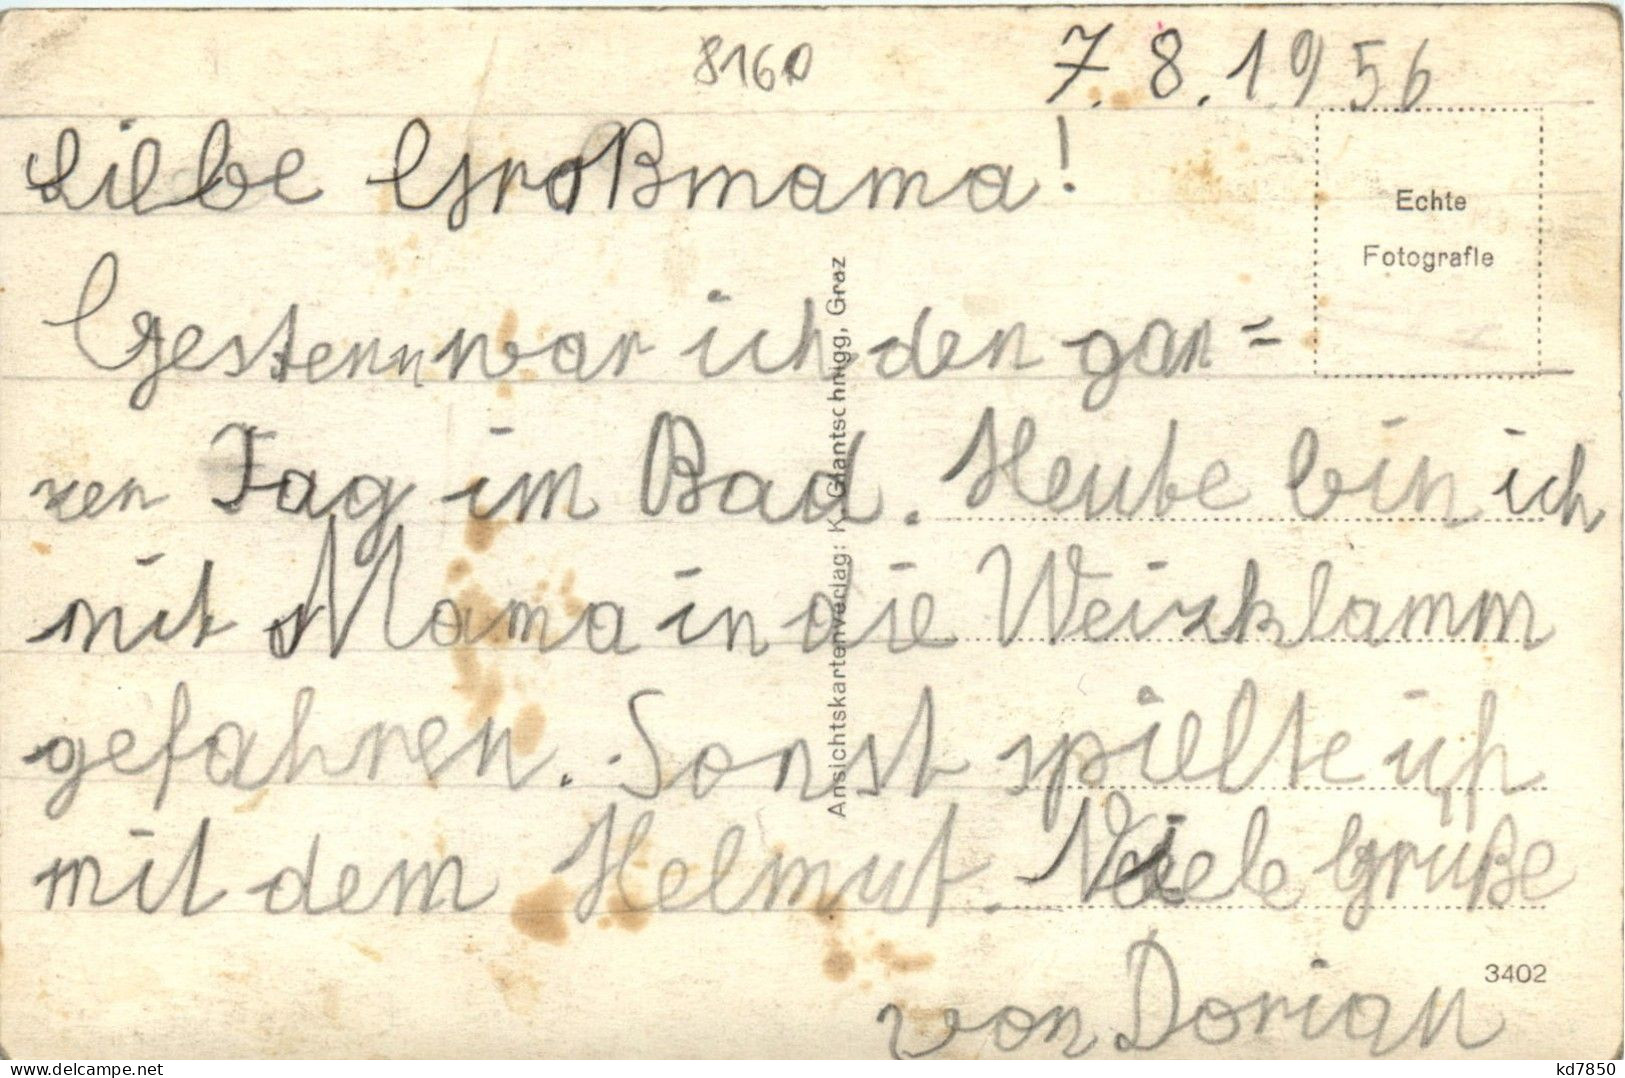 8160
7.8.1956
Liebe Großmama!
Echte
Fotografie
Gestern war ich den gan=
zen Tag im Bad. Heute bin ich
mit Mama in die Weizklamm
gefahren. Sonst spielte ich
mit dem Helmut. Viele Grüße
von Dorian
Ansichtskartenverlag: K. Glantschnigg, Graz
3402
kd7850